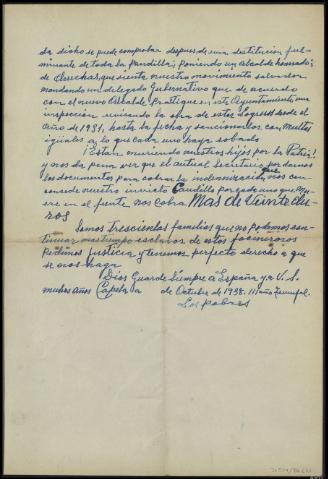 da dicho se puede comprobar despues de una destitucion ful-
minante de toda la pandilla; poniendo un alcalde honrado;
de derechas, que sienta nuestro movimiento salvador
mandando un delegado Gubernativo que de acuerdo
con el nuevo Alcalde practique en este Ayuntamiento una
inspeccion revisando la obra de estos desde el
año de 1931, hasta la fecha y sancionarlos con multas
iguales a lo que cada uno haya robado
Estan muriendo nuestros hijos por la Patria!
y nos da pena ver que el actual Secretario por darnos
los documentos para cobrar la indemnizacion que nos
concede nuestro invicto Caudillo por cada uno que mue-
re en el frente nos cobra Mas de Veinte du-
ros
Somos Trescientas familias que no podemos con-
tinuar mas tiempo esclavos de estos
Pedimos justicia y tenemos perfecto derecho a que
se nos haga
Dios Guarde Siempre a España y a V. S.
muchos años Capela a de Octubre de 1938. III año Triunfal.
Los pobres